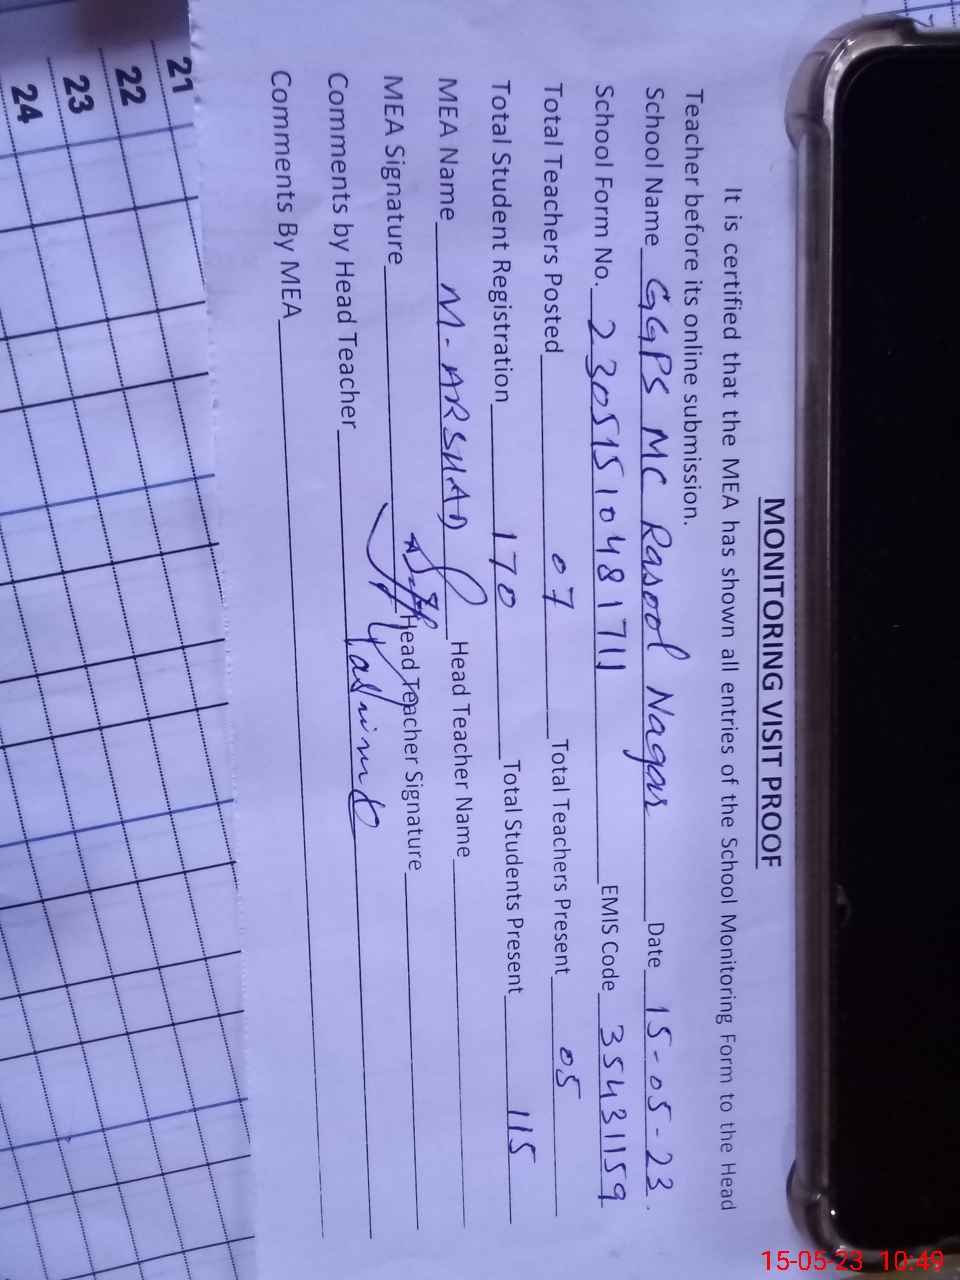 MONITORING VISIT PROOF
It is certified that the MEA has shown all entries of the School Monitoring Form to the Head
Teacher before its online submission.
School Name GGPS MC Rasool Nagar Date 15-05-23
School Form No. 230515104817111 EMIS Code 35431159
Total Teachers Posted 07 Total Teachers Present 05
Total Student Registration 170 Total Students Present 115
MEA Name M-ARSHAD Head Teacher Name
MEA Signature Head Teacher Signature
Comments by Head Teacher
Comments By MEA
21
22
23
24
15-05-23 10:49